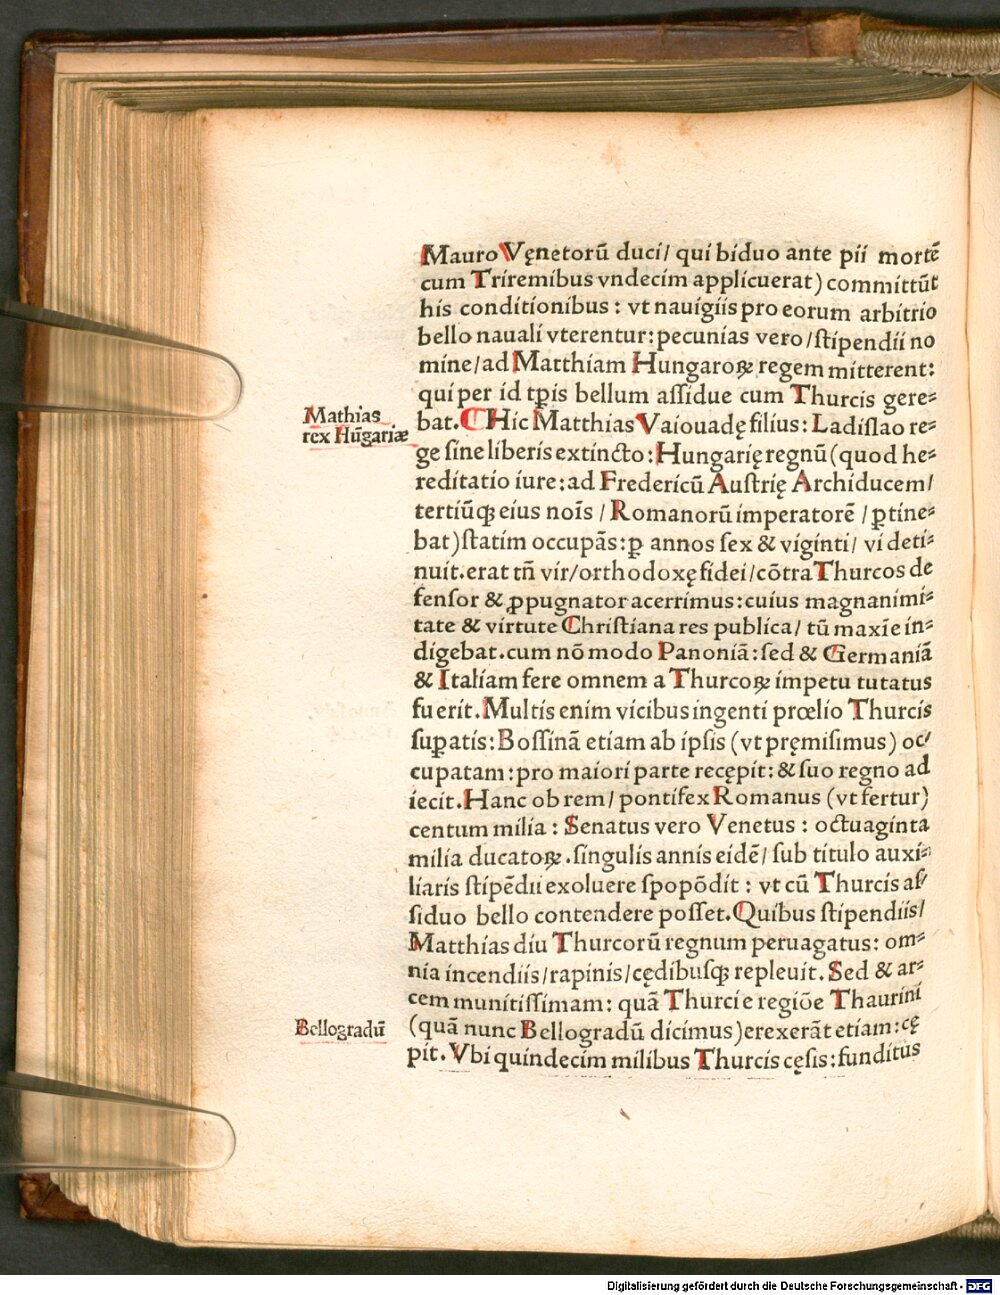 Mauro Vęnetorū duci/ qui biduo ante pii mortē
cum Triremibus vndecim applicuerat) committūt
his conditionibus : vt nauigiis pro eorum arbitrio
bello nauali vterentur: pecunias vero/ſtipendii no
mine/ad Matthiam Hungaroꝝ regem mitterent:
qui per id tp̄is bellum aſſidue cum Thurcis gere⸗
bat. ⸿ Hic Matthias Vaiouadę filius: Ladiſlao re⸗
Mathias
rex Hūgariæ
ge ſine liberis extincto: Hungarię regnū (quod he⸗
reditatio iure: ad Fredericū Auſtrię Archiducem/
tertiūꝙ eius nōis / Romanorū imperatorē / ꝑtine⸗
bat) ſtatim occupās: ꝑ annos ſex & viginti/ vi deti⸗
nuit. erat tn̄ vir/orthodoxę fidei/cōtra Thurcos de
fenſor & ꝓpugnator acerrimus: cuius magnanimi⸗
tate & virtute Chriſtiana res publica/ tū maxīe in⸗
digebat. cum nō modo Panoniā: ſed & Germaniā
& Italiam fere omnem a Thurcoꝝ impetu tutatus
fuerit. Multis enim vicibus ingenti prœlio Thurcis
ſuꝑatis: Boſſinā etiam ab ipſis (vt pręmiſimus) oc/
cupatam: pro maiori parte recępit: & ſuo regno ad
iecit. Hanc ob rem/ pontifex Romanus (vt fertur)
centum milia : Senatus vero Venetus : octuaginta
milia ducatoꝝ. ſingulis annis eidē/ ſub titulo auxi⸗
liaris ſtipēdii exoluere ſpopōdit : vt cū Thurcis aſ/
ſiduo bello contendere poſſet. Quibus ſtipendiis/
Matthias diu Thurcorū regnum peruagatus: om⸗
nia incendiis/rapinis/cędibuſꝙ repleuit. Sed & ar⸗
cem munitiſſimam: quā Thurci e regiōe Thaurini
Bellogradū
(quā nunc Bellogradū dicimus) erexerāt etiam: cę
pit. Vbi quindecim milibus Thurcis cęſis: funditus
Digitalisierung gefördert durch die Deutsche Forschungsgemeinschaft - DFG